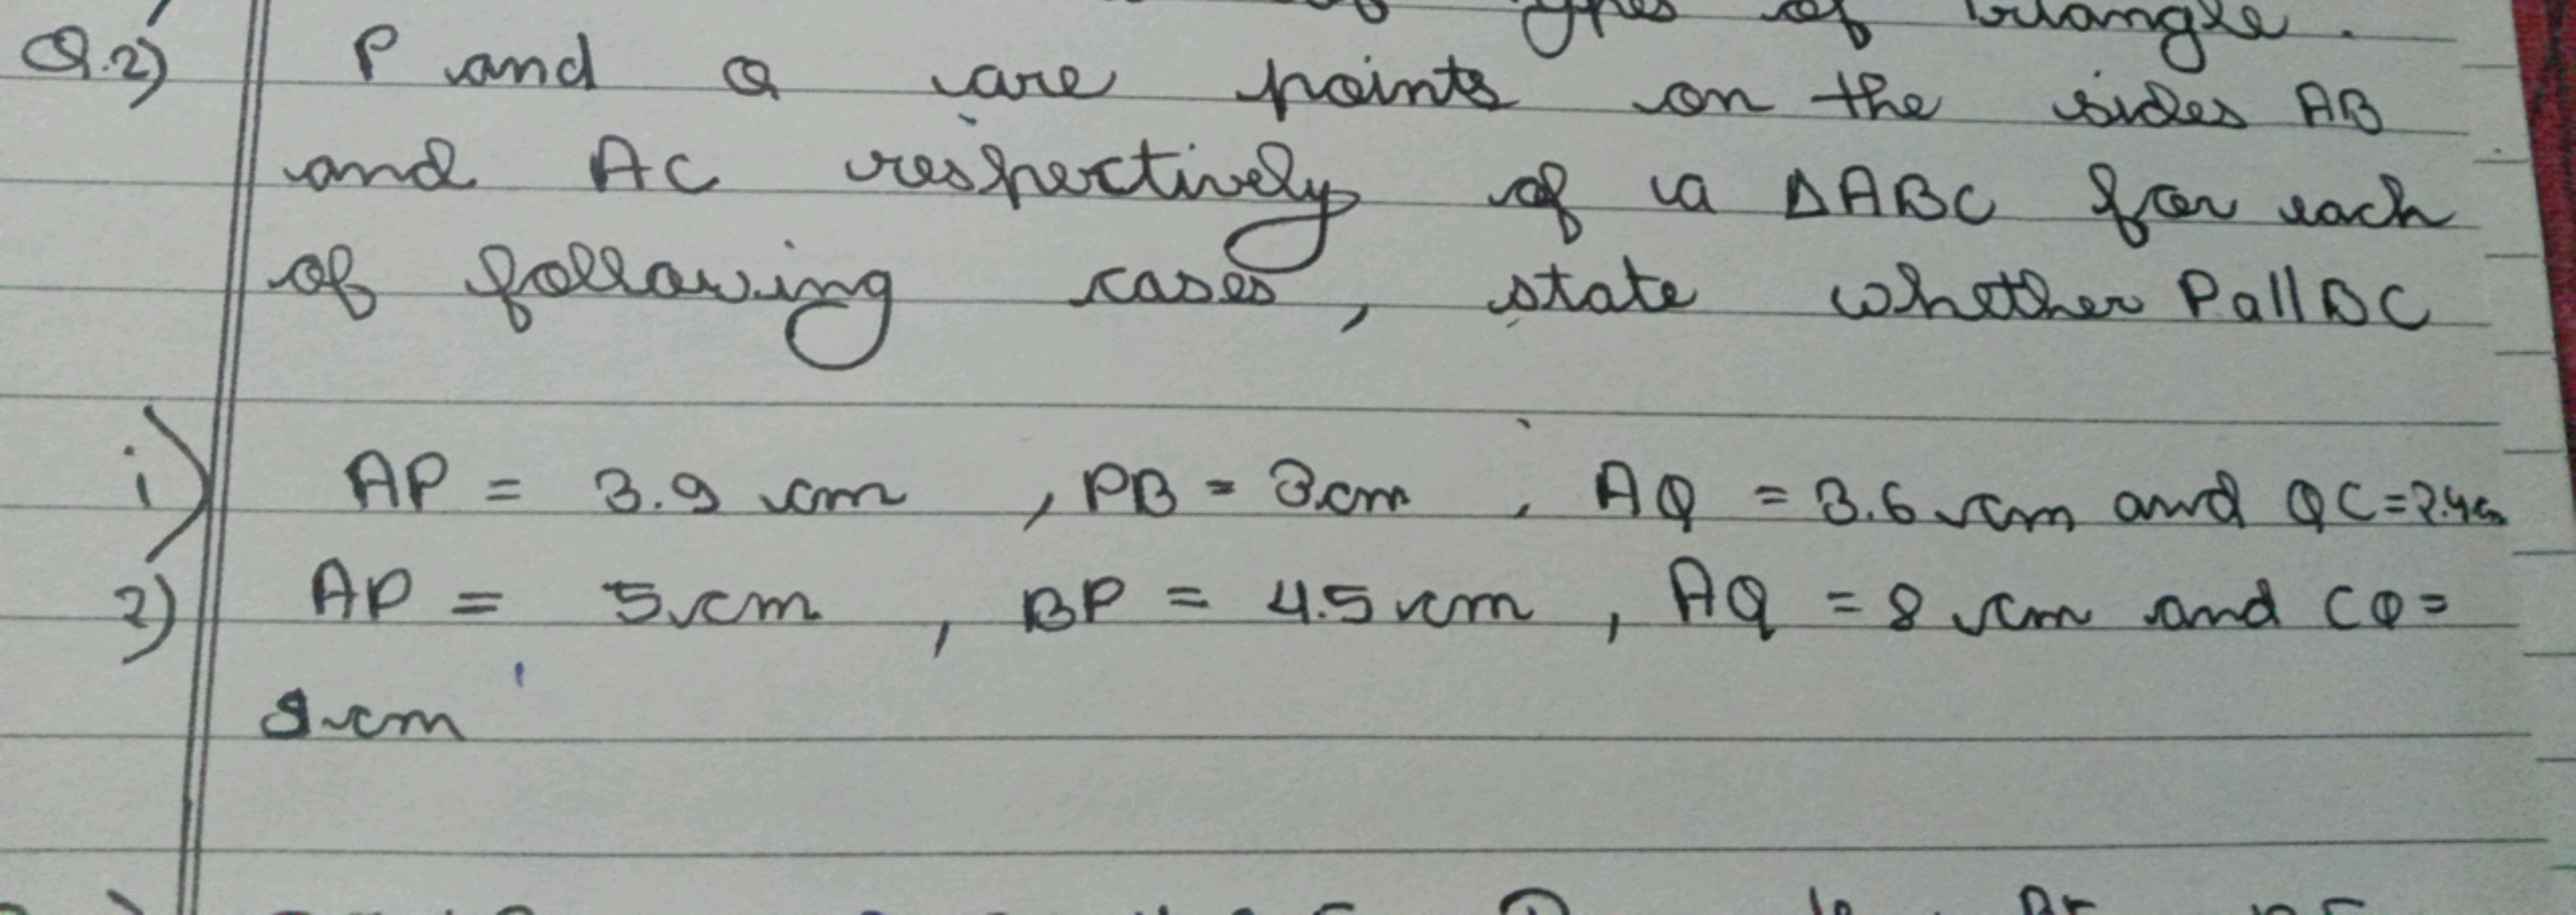 types of triangle.
Q.2) P and Q are points on the sides AB
and AC respectively of a ΔABC for each
of following cases, state whether PQ||BC
i) AP = 3.9 cm , PB = 3cm , AQ = 3.6 cm and QC=2.4cm
2) AP = 5cm , BP = 4.5 cm , AQ = 8 cm and CQ=
9cm